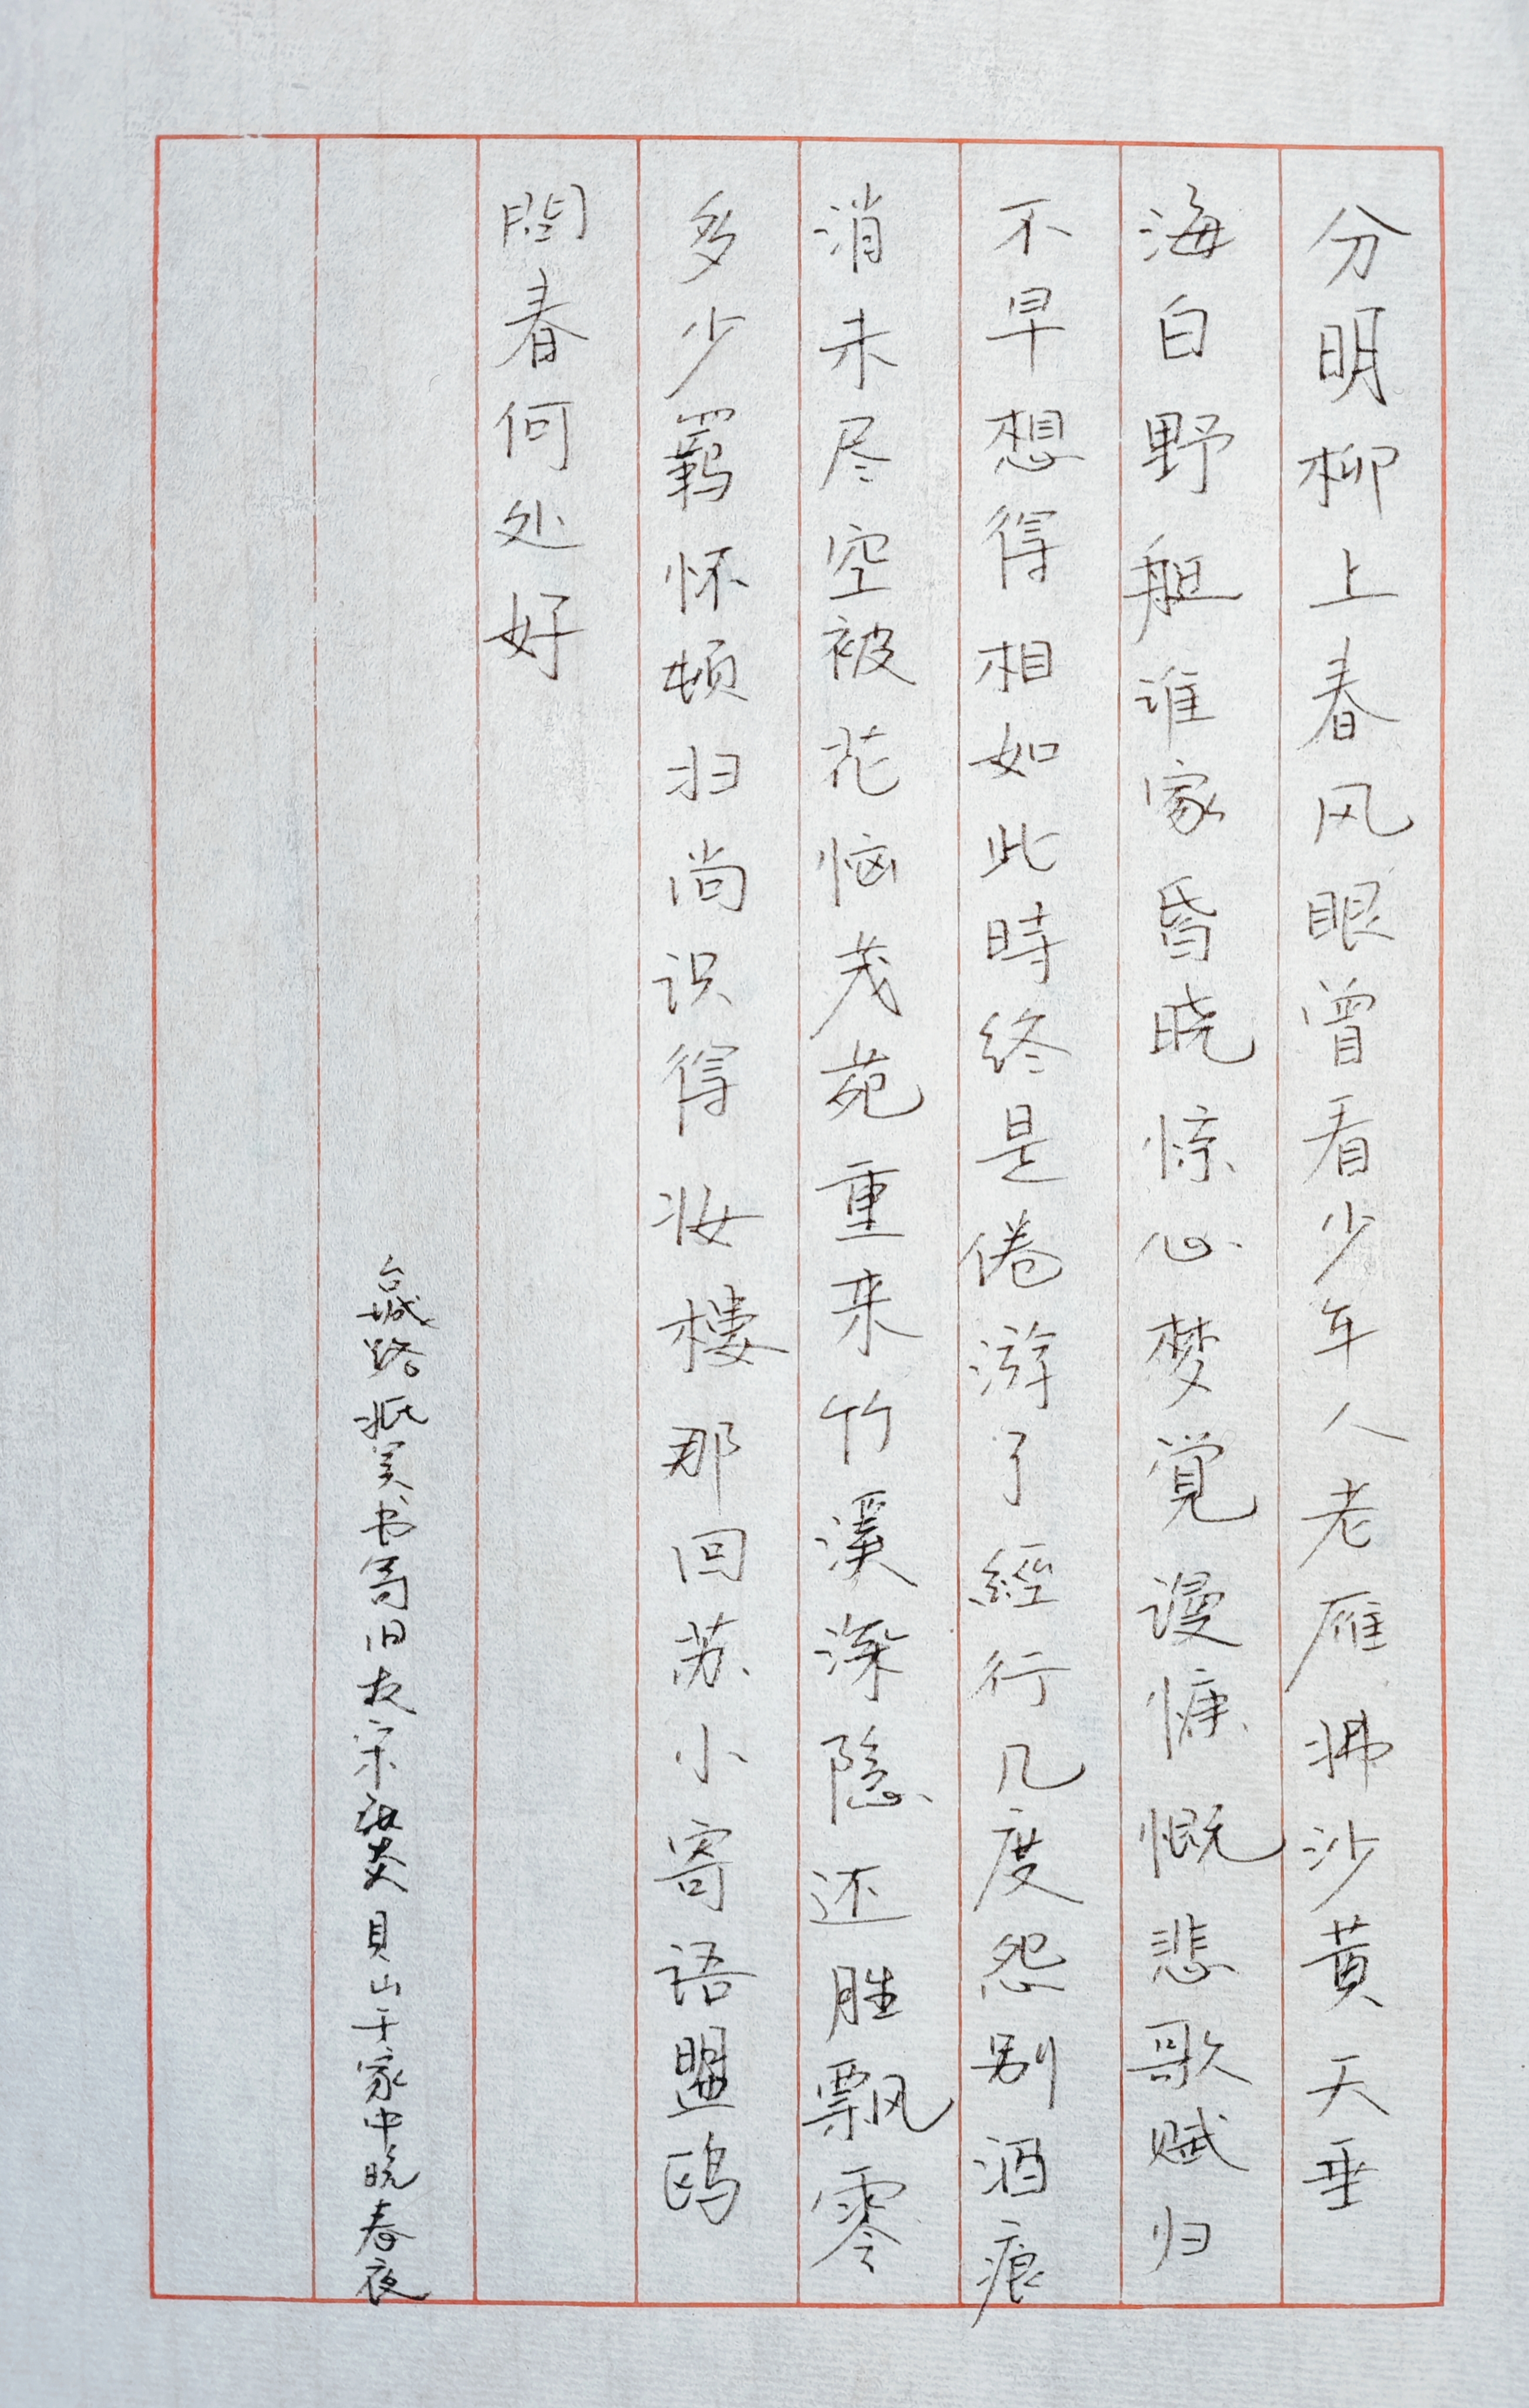 分明柳上春风眼曾看少年人老雁拂沙黄天垂
海白野艇谁家昏晓惊心梦覚谩慷慨悲歌赋归
不早想得相如此時终是倦游了經行几度怨别酒痕
消未尽空被花恼茂苑重来竹溪深隐还胜飘零
多少羁怀顿扫尚识得妆樓那回苏小寄语盟鸥
問春何处好
台城路抵吴书寄旧友宋张炎貝山于家中晚春夜